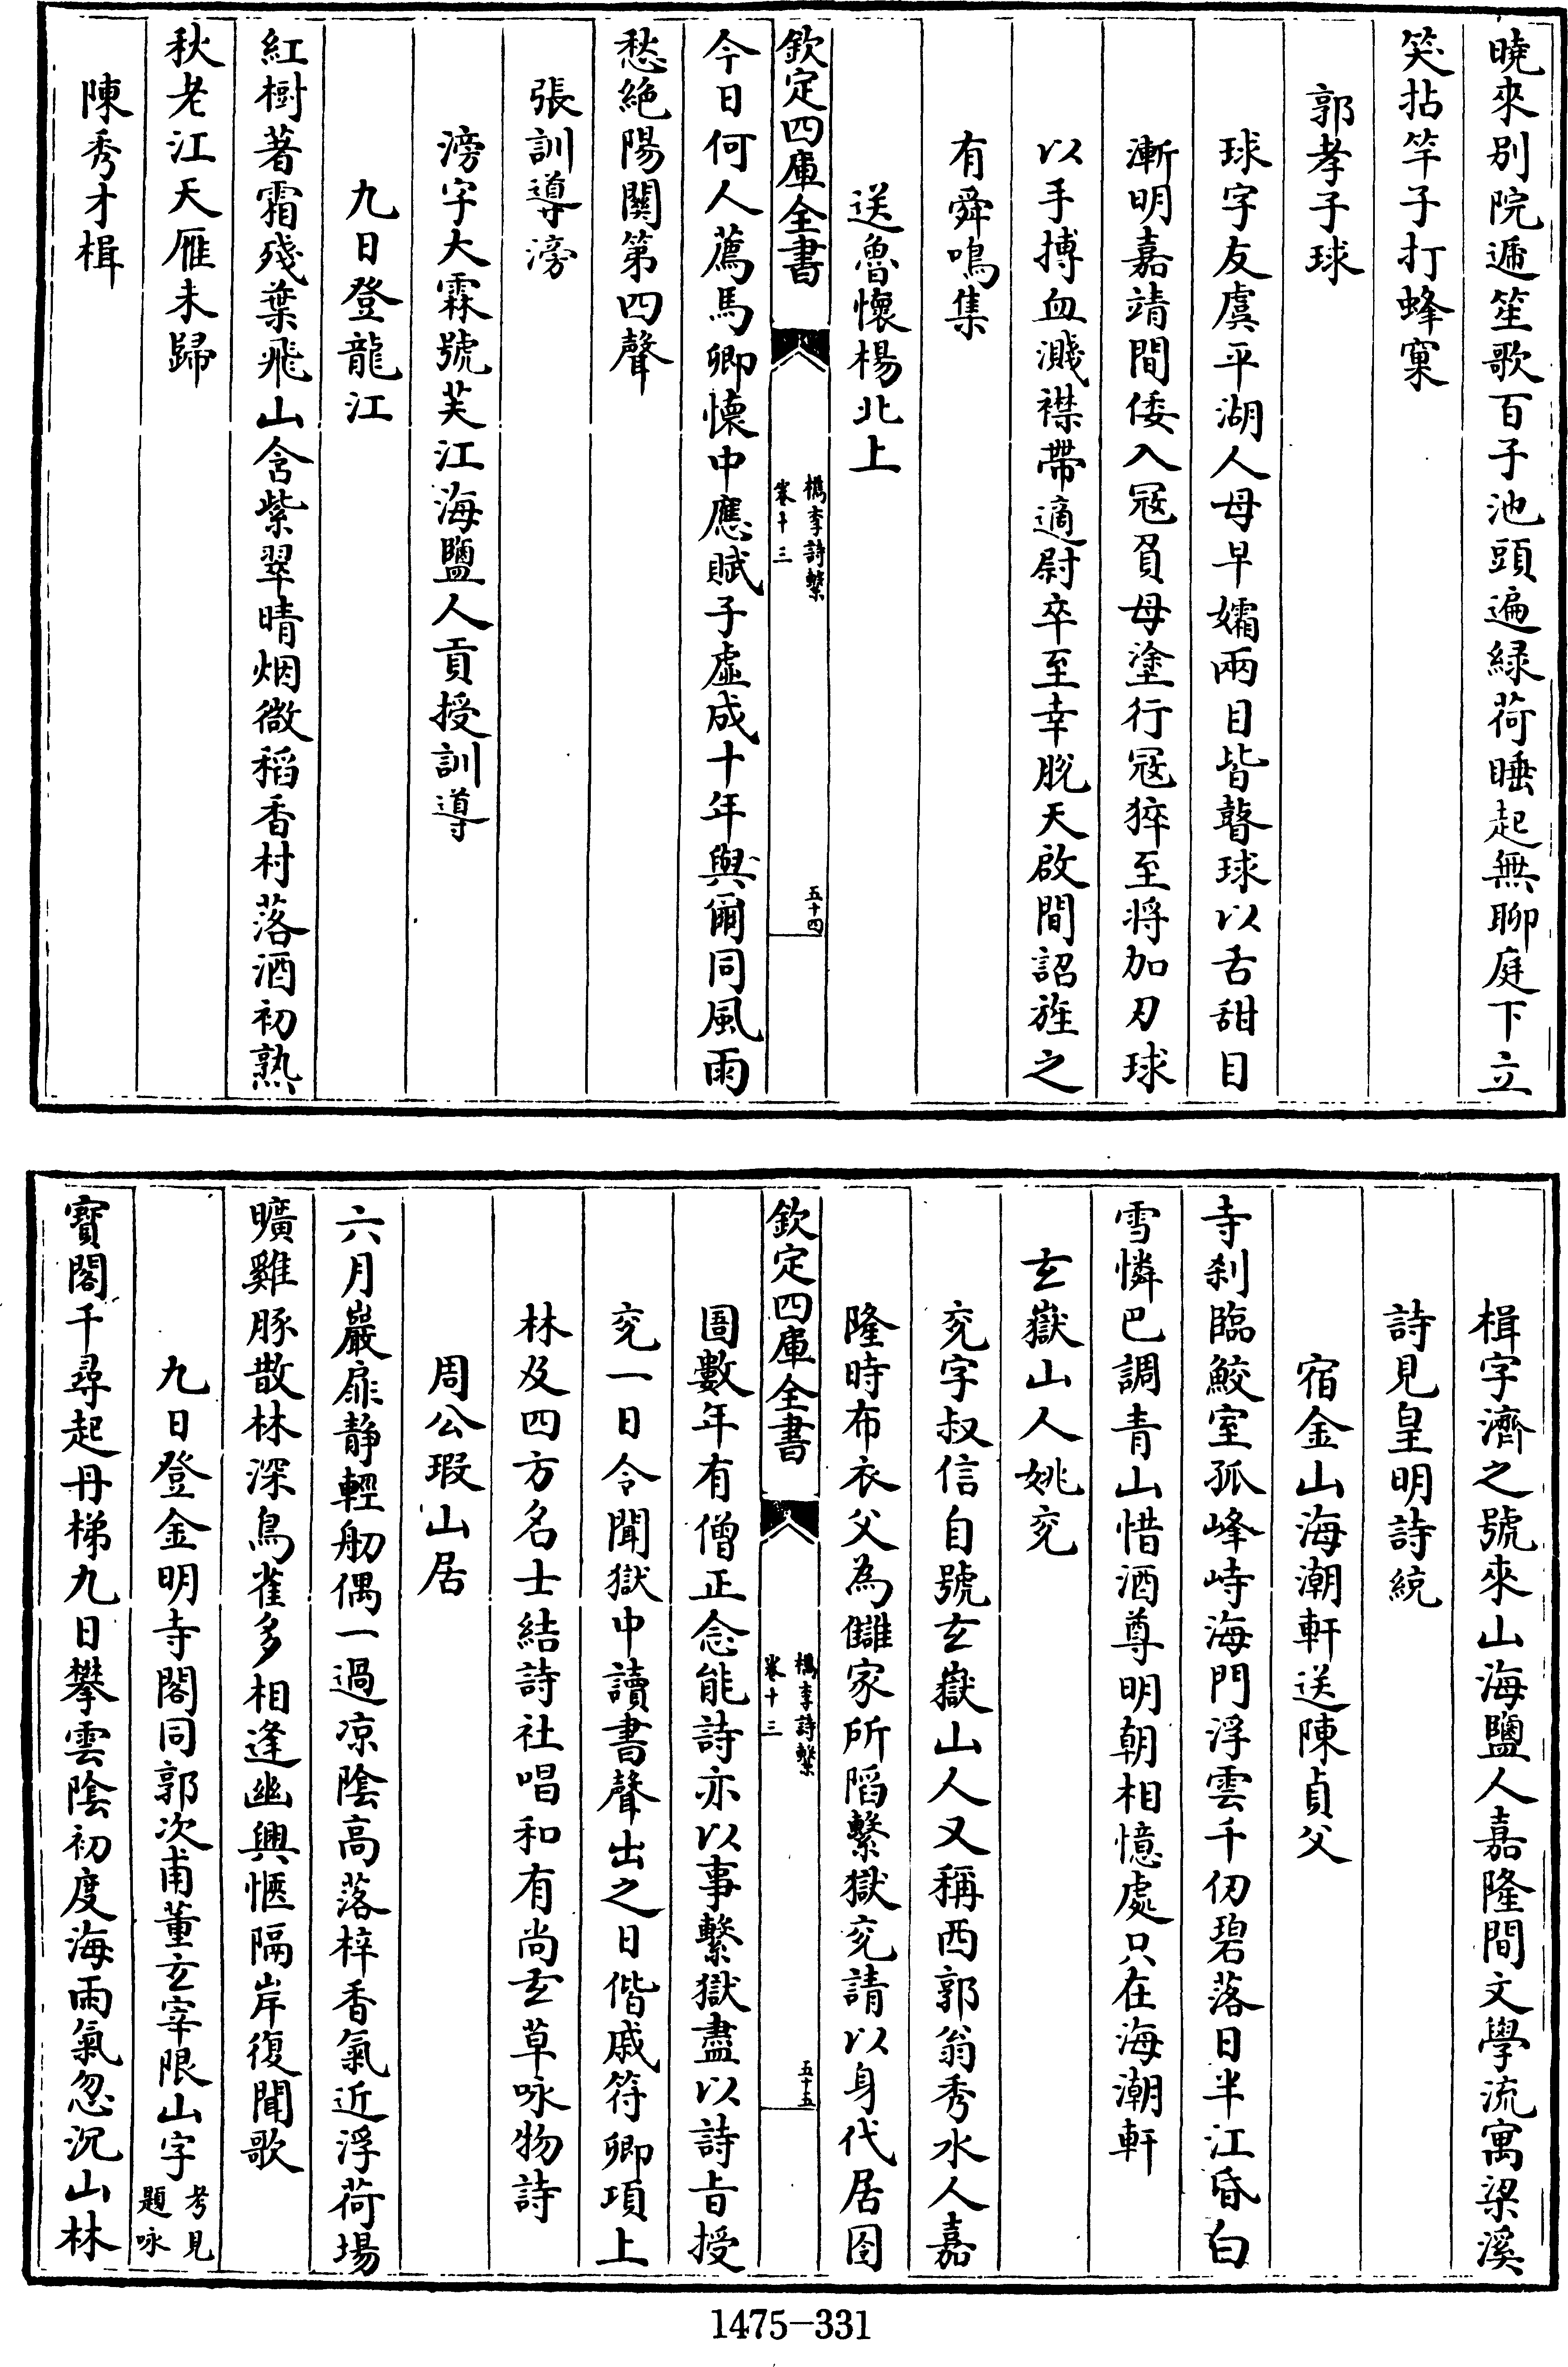 曉來別院遞笙歌百子池頭遍緑荷睡起無聊庭下立
笑拈竿子打蜂窠
郭孝子球
球字友虞平湖人母早孀兩目皆瞽球以舌甜目
漸明嘉靖間倭入冦負母塗行冦猝至将加刃球
以手搏血濺襟帶適尉卒至幸脫天啟間詔旌之
有舜鳴集
送魯懷楊北上
欽定四庫全書
檇李詩繫
卷十三
五十四
今日何人薦馬卿懷中應賦子虛成十年與爾同風雨
愁絶陽關第四聲
張訓導滂
滂字大霖號芙江海鹽人貢授訓導
九日登龍江
紅樹著霜殘葉飛山含紫翠晴烟微稻香村落酒初熟
秋老江天雁未歸
陳秀才楫
楫字濟之號來山海鹽人嘉隆間文學流寓梁溪
詩見皇明詩統
宿金山海潮軒送陳貞父
寺刹臨鮫室孤峰峙海門浮雲千仞碧落日半江昏白
雪憐巴調青山惜酒尊明朝相憶處只在海潮軒
玄嶽山人姚兗
兗字叔信自號玄嶽山人又稱西郭翁秀水人嘉
隆時布衣父為讎家所䧟繫獄兗請以身代居囹
圄數年有僧正念能詩亦以事繫獄盡以詩㫖授
兗一日令聞獄中讀書聲出之日偕戚符卿項上
林及四方名士結詩社唱和有尚玄草咏物詩
周公瑕山居
六月巖扉静輕舠偶一過凉陰高落梓香氣近浮荷場
曠雞豚散林深鳥雀多相逢幽興愜隔岸復聞歌
九日登金明寺閣同郭次甫董玄宰限山字
考見
題咏
寳閣千尋起丹梯九日攀雲陰初度海雨氣忽沉山林
1475-331